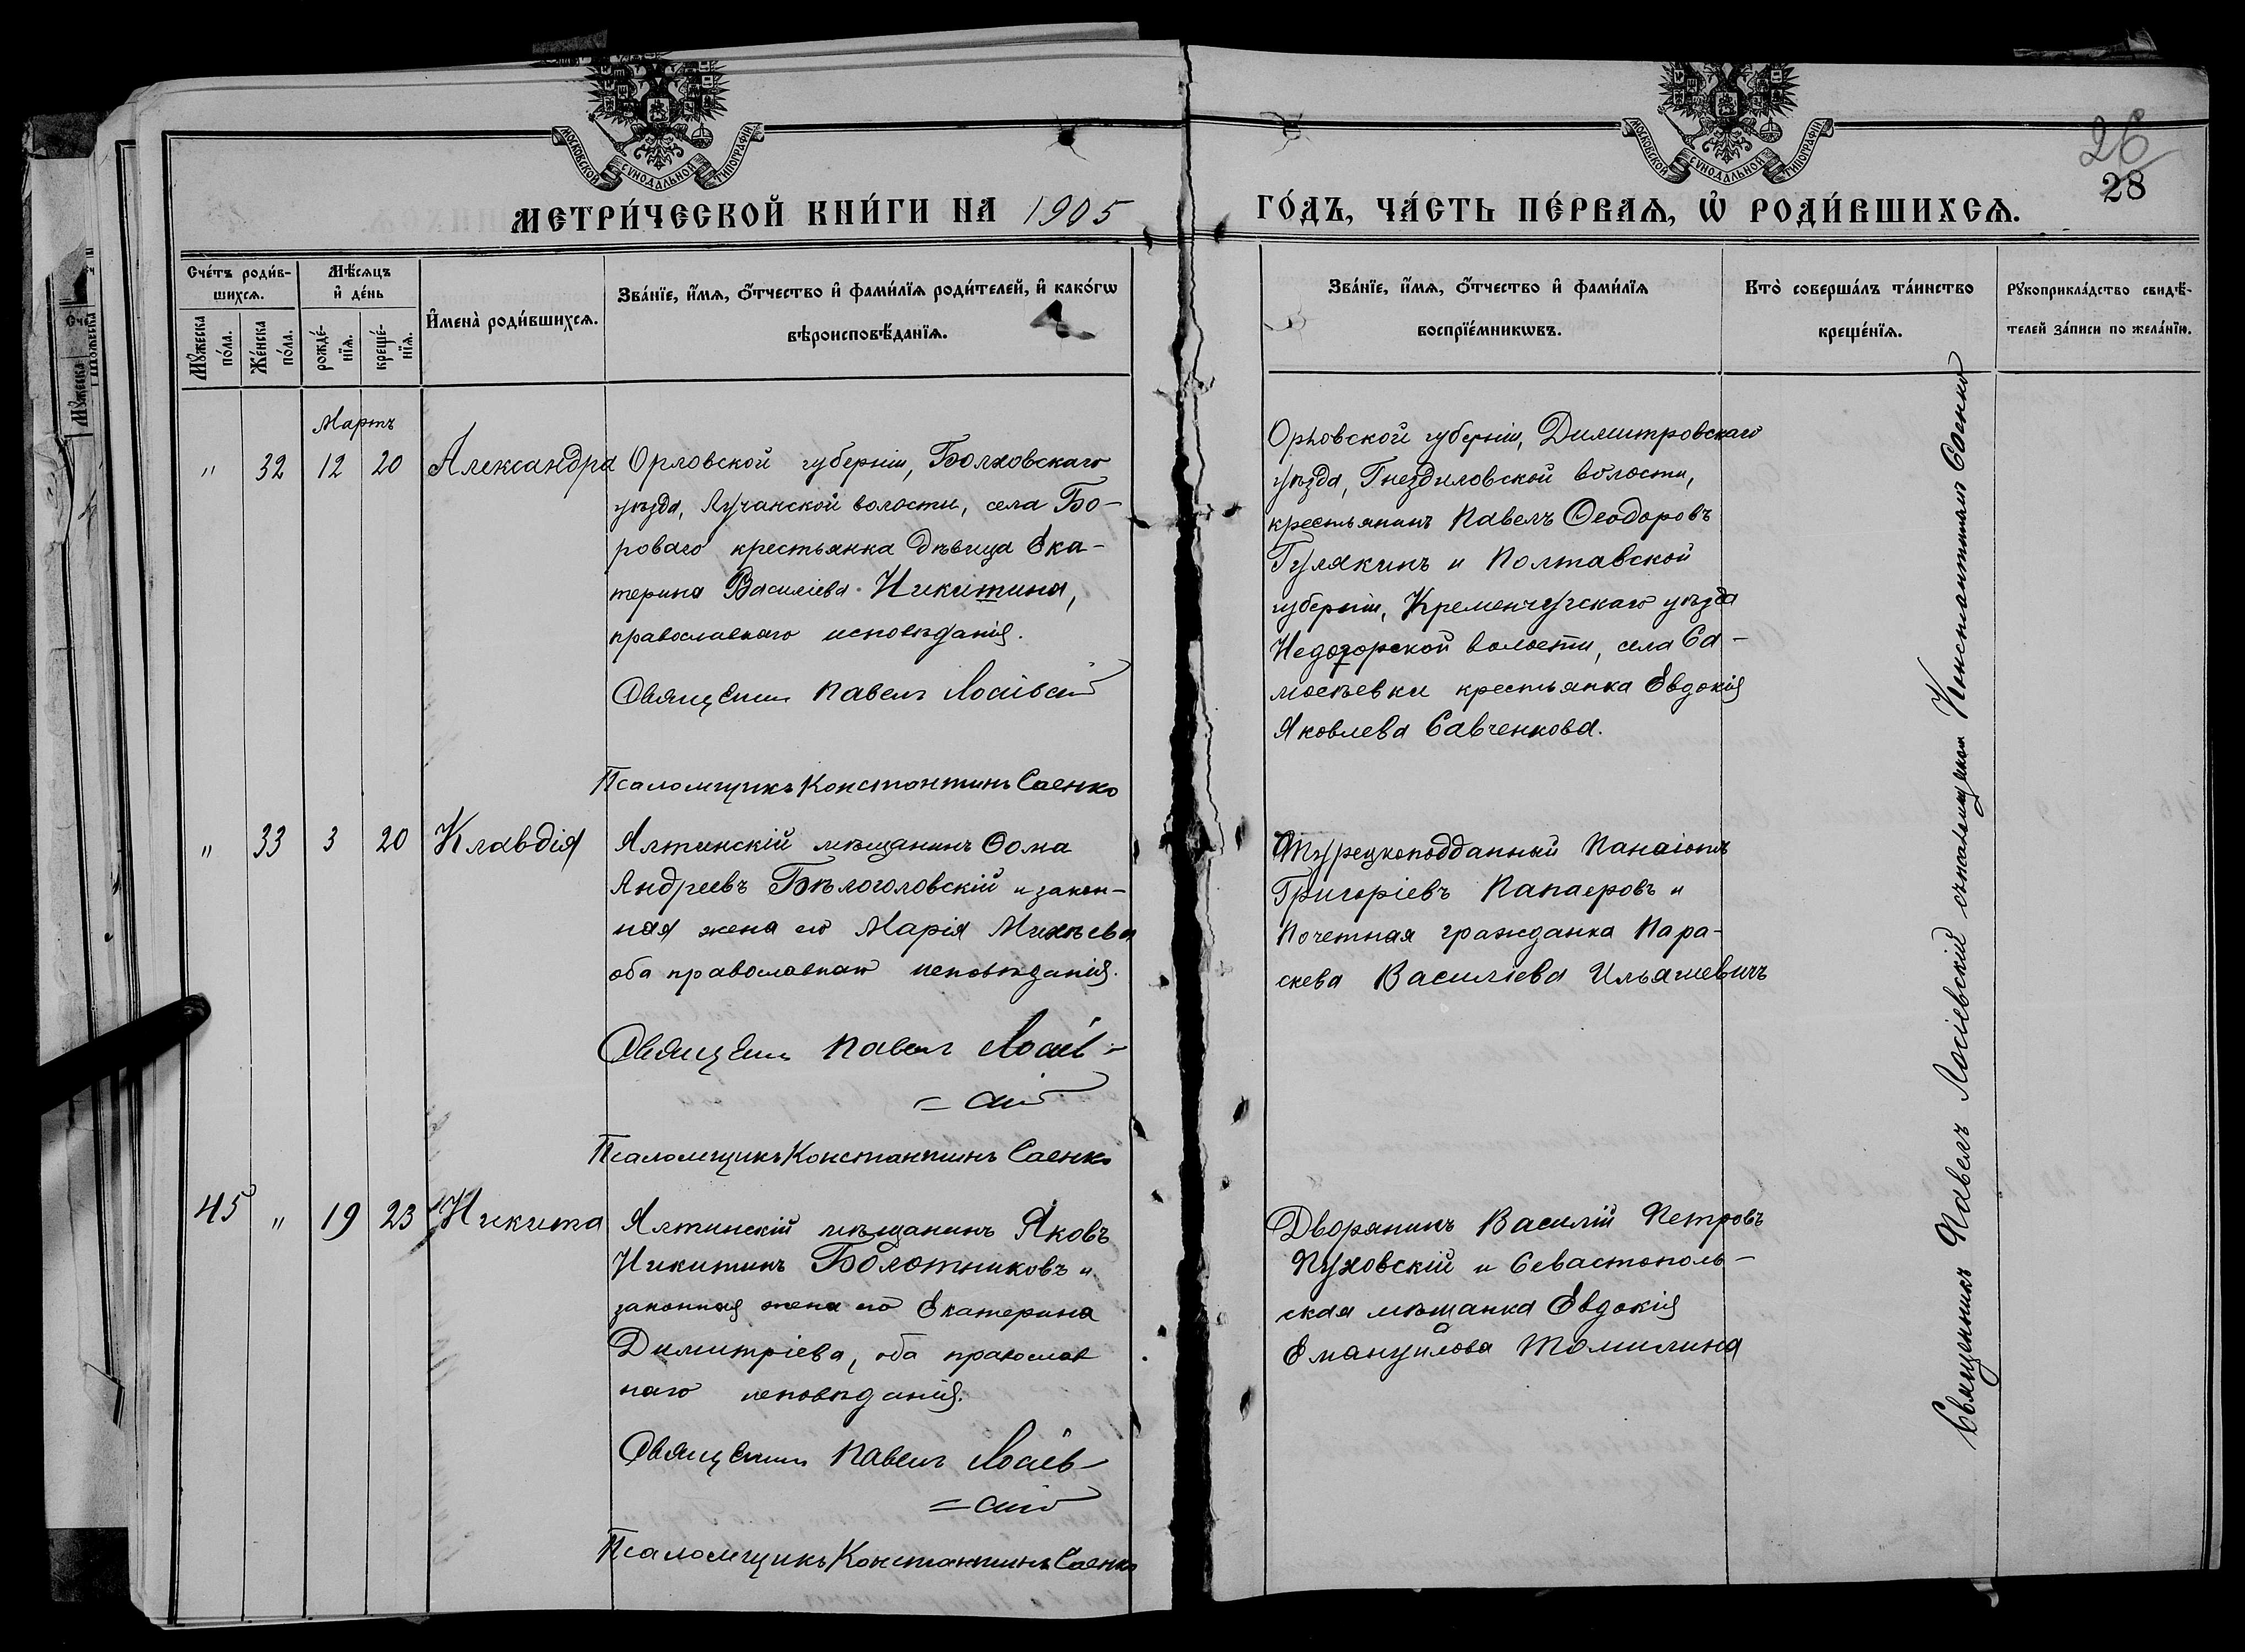 МОСКОВСКОЙ СУНОДАЛЬНОЙ ТИПОГРАФІИ
МОСКОВСКОЙ СУНОДАЛЬНОЙ ТИПОГРАФІИ
26
28
МЕТРИ́ЧЕСКОЙ КНИ́ГИ НА 1905
ГО́ДЪ, ЧА́СТЬ ПЕ́РВАѦ, Ѡ҆ РОДИ́ВШИХСѦ.
Сче́тъ роди́в-
шихсѧ.
Мꙋ́жеска
по́ла.
Же́нска
по́ла.
Мѣ́сѧцъ
и҆ де́нь
рожде́-
нїѧ.
креще́-
нїѧ.
И҆мена̀ роди́вшихсѧ.
Зва́нїе, и҆́мѧ, ѻ҆́тчество и҆ фами́лїѧ роди́телей, и҆ како́гѡ
вѣроисповѣ́данїѧ.
Зва́нїе, и҆́мѧ, ѻ҆́тчество и҆ фами́лїѧ
воспрїе́мникѡвъ.
Кто̀ соверша́лъ та́инство
креще́нїѧ.
Рꙋкоприкла́дство свидѣ́-
телей за́писи по жела́нїю.
Мартъ
" 32 12 20 Александра
Орловской губерніи, Болховскаго
уѣзда, Лучанской волости, села Бо-
роваго крестьянка дѣвица Ека-
терина Василіева Никитина,
православнаго исповѣданія.
Священникъ Павелъ Лосіевскій
Псаломщикъ Константинъ Саенко
Орловской губерніи, Димитровскаго
уѣзда, Гнездиловской волости,
крестьянинъ Павелъ Ѳеодоровъ
Гулякинъ и Полтавской
губерніи, Кременчугскаго уѣзда
Недогорской волости, села Са-
моѣевки крестьянка Евдокія
Яковлева Савченкова.
" 33 3 20 Клавдія
Ялтинскій мѣщанинъ Ѳома
Андреевъ Бѣлоголовскій и закон-
ная жена его Марія Михѣева
оба православнаго исповѣданія.
Священникъ Павелъ Лосіев-
=скій
Псаломщикъ Константинъ Саенко
Турецкоподданный Панаіотъ
Григоріевъ Папаеровъ и
Почетная гражданка Пара-
скева Василіева Ильяшевичъ
45 " 19 23 Никита
Ялтинскій мѣщанинъ Яковъ
Никитинъ Болотниковъ и
законная жена его Екатерина
Димитріева, оба православ
наго исповѣданія.
Священникъ Павелъ Лосіев-
=скій
Псаломщикъ Константинъ Саенко
Дворянинъ Василій Петровъ
Пуховскій и Севастополь-
ская мѣщанка Евдокія
Емануилова Томилина
Священникъ Павелъ Лосіевскій съ псаломщикомъ Константиномъ Саенко